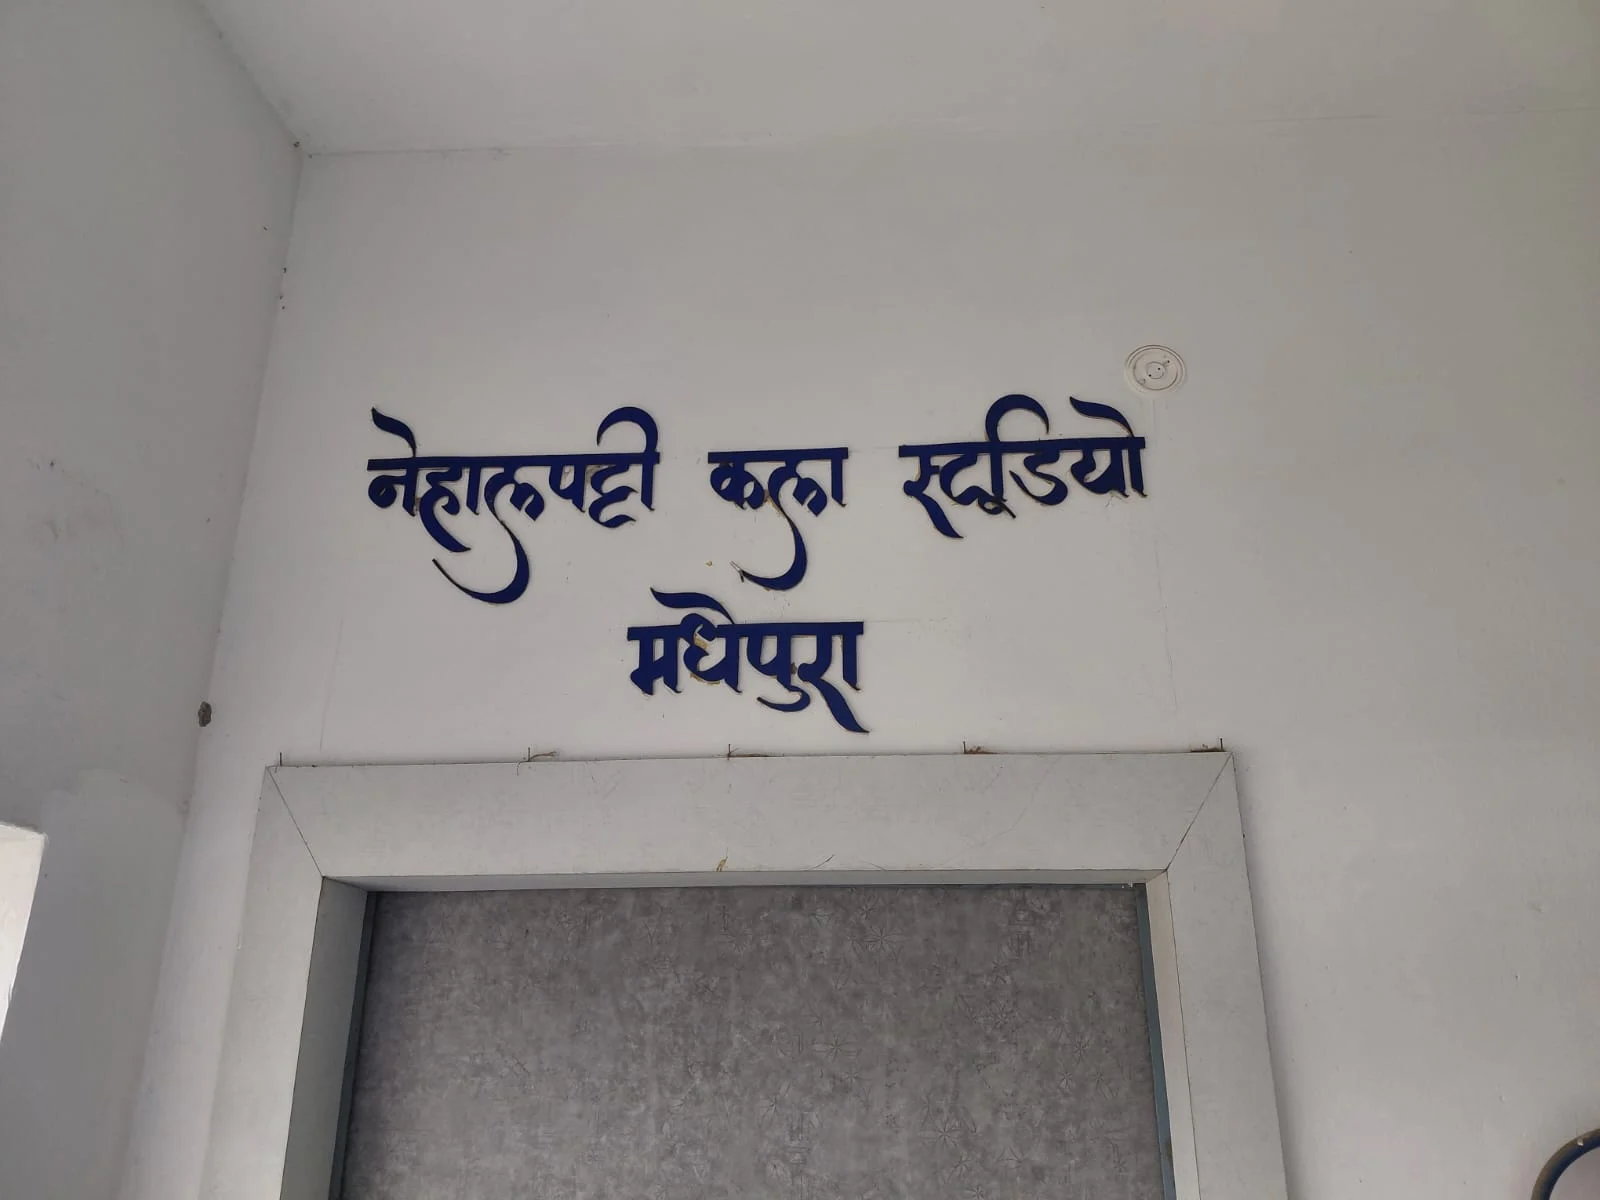 नेहालपट्टी कला स्टूडियो
मधेपुरा